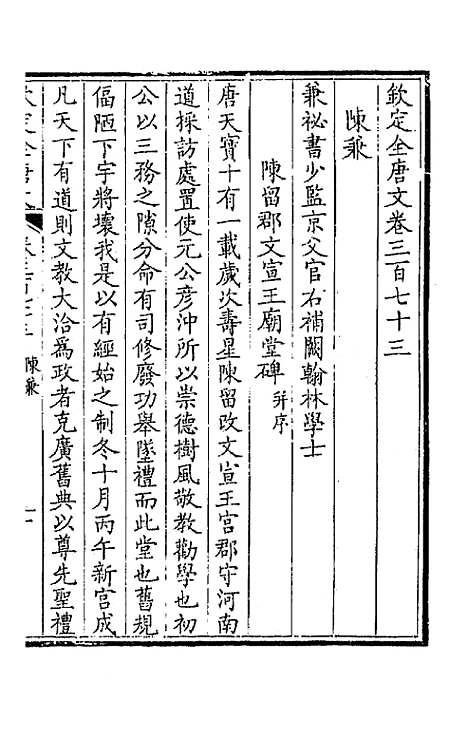 欽定全唐文卷三百七十三
陳兼
兼祕書少監京父官右補闕翰林學士
陳留郡文宣王廟堂碑并序
唐天寶十有一載歲次壽星陳留改文宣王宮郡守河南
道採訪處置使元公彥沖所以崇德樹風敬教勸學也初
公以三務之隙分命有司修廢功舉墜禮而此堂也舊規
偪陋下宇將壞我是以有經始之制冬十月丙午新宮成
凡天下有道則文教大洽爲政者克廣舊典以尊先聖禮
欽定全唐文 卷三百七十三 陳兼 一